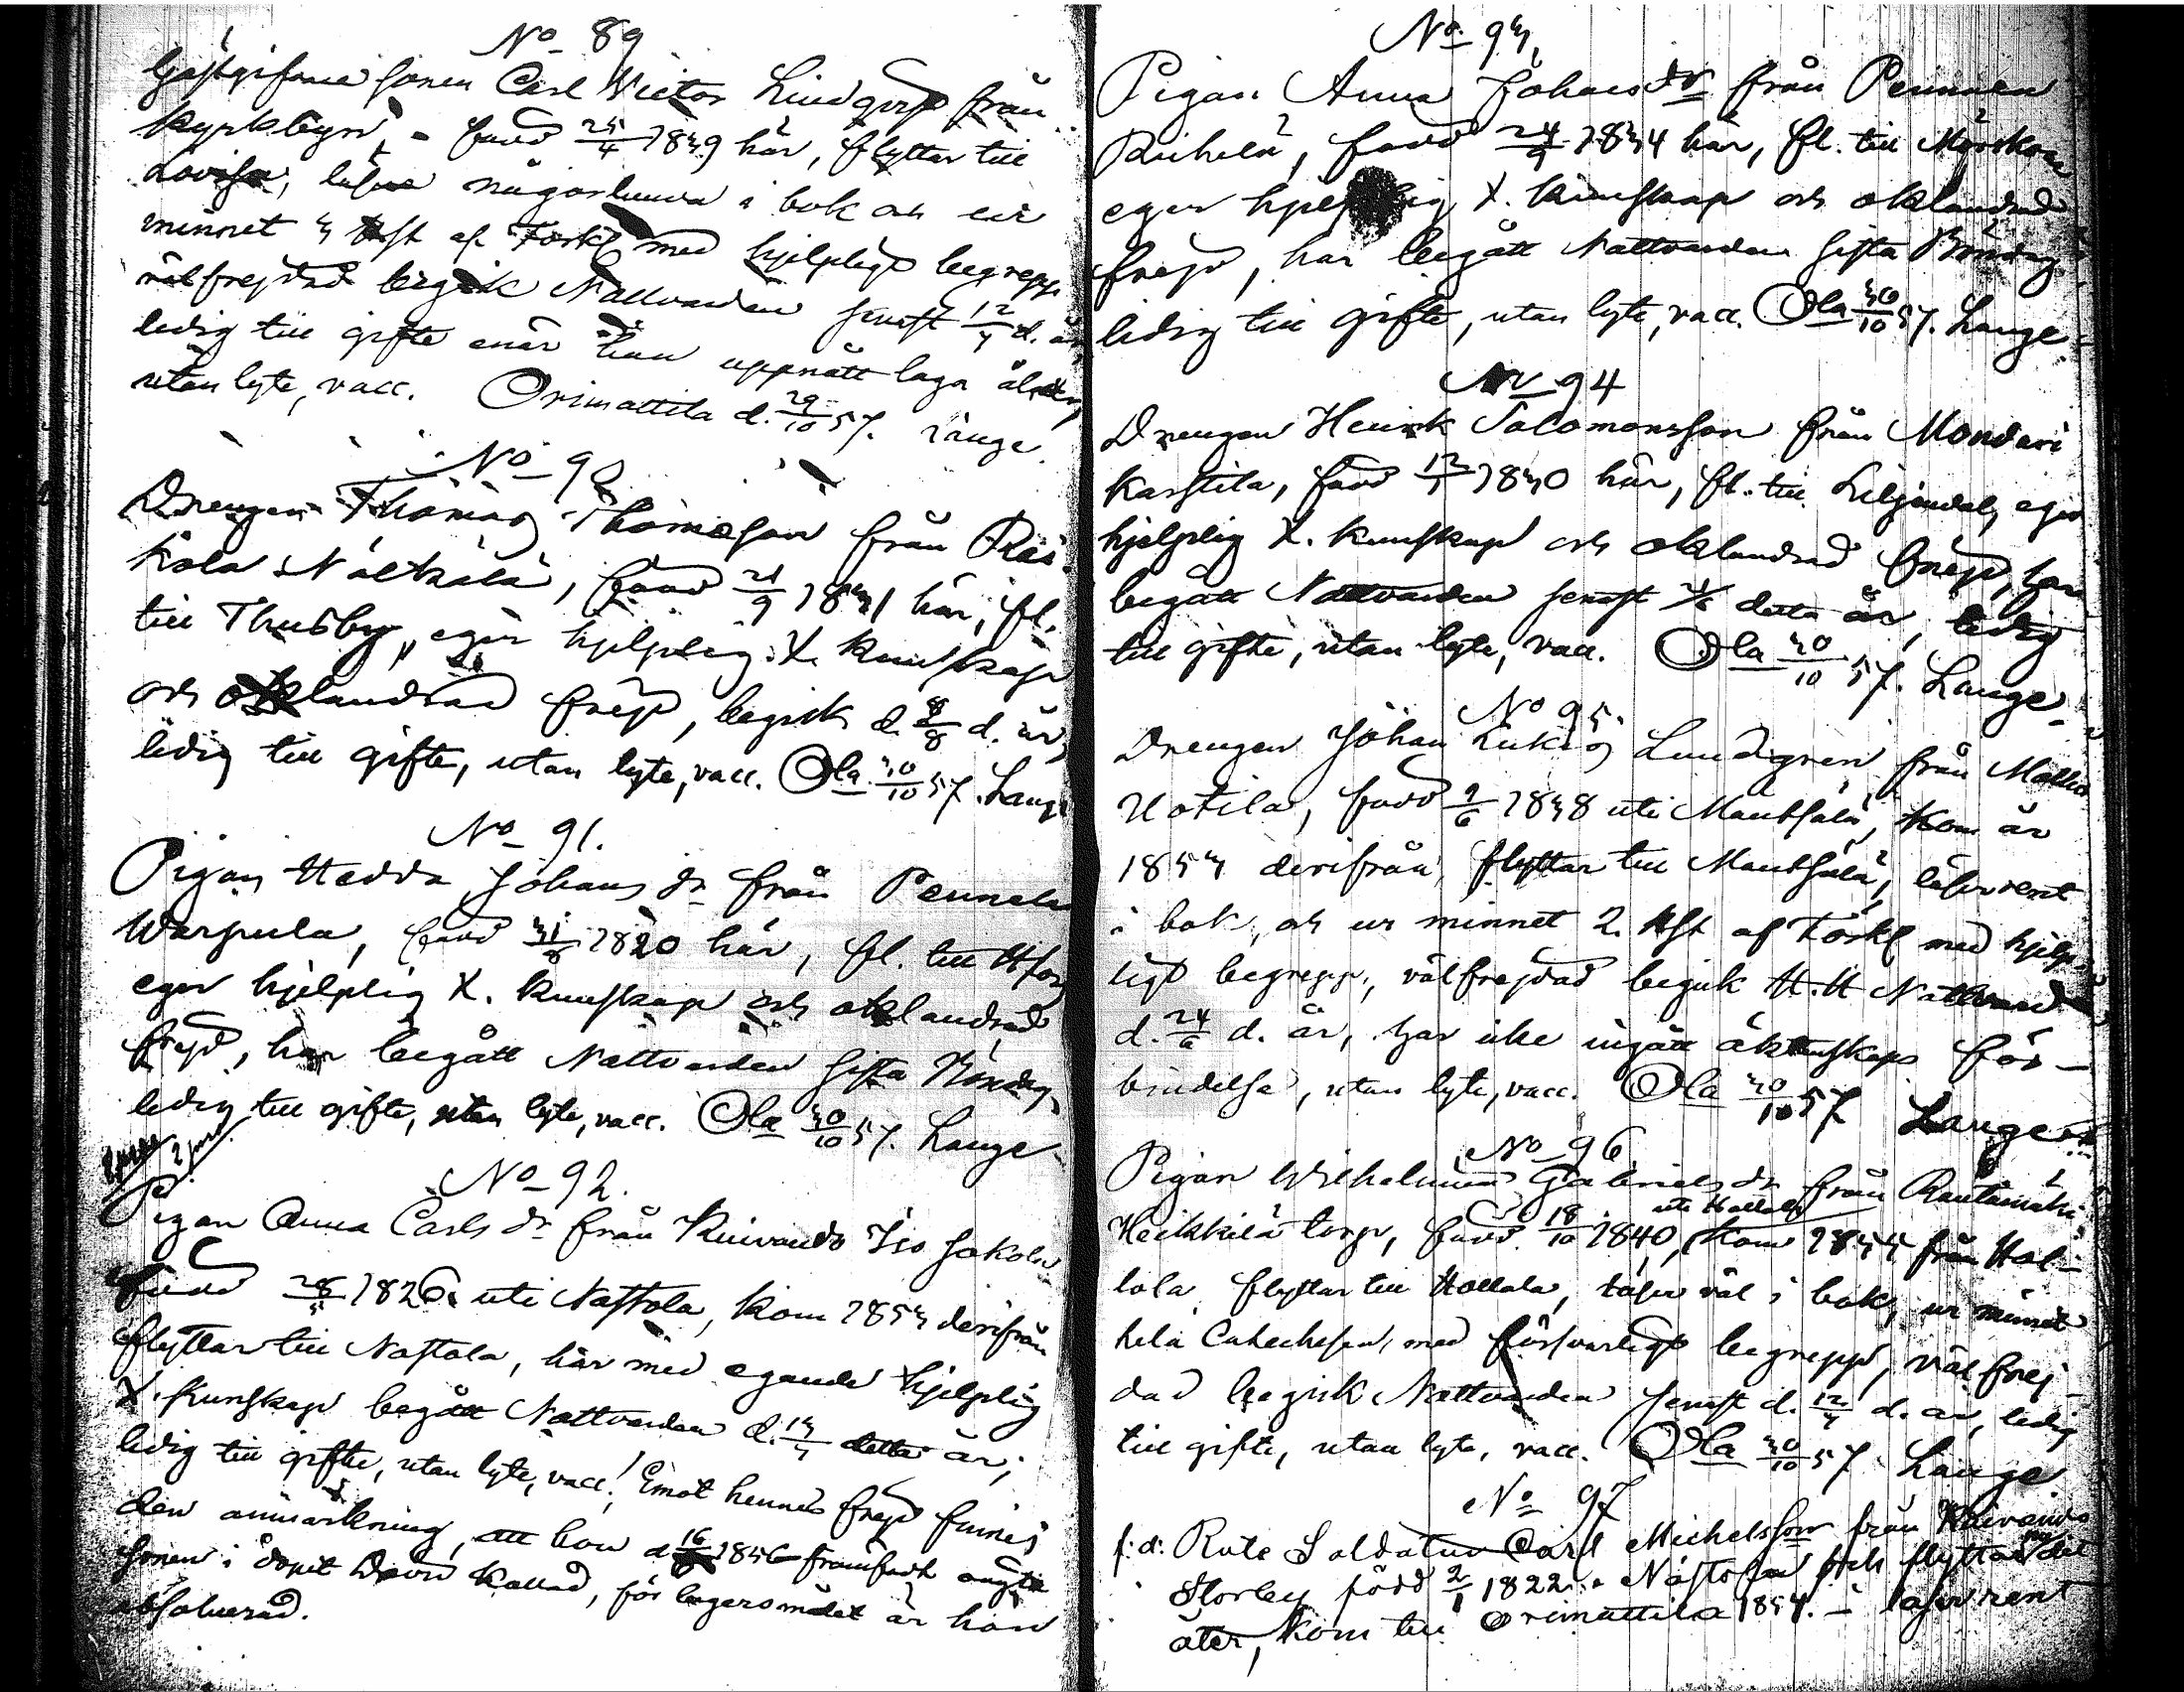 No 89
Gästgifvare sonen Carl Victor Lindqvist från
Kyrkbyn, född 25/4 1839 här, flyttar till
Lovisa, läser någorlunda i bok och ur
minnet 3 H.st. afFörkl. med hjelpligt begrepp
välfrejdad begick Nattvarden senast 12/7 d. år,
ledig till gifte enär han uppnått laga ålder,
utan lyte, vacc. Orimattila d. 29/10 57. Lange
No 90
Drengen Thomas Thomasson från
kola Nälkälä, född 21/9 1831 här, fl.
till Thusby, eger hjelplig X. kunskap
och oklandrad frejd, begick d. 8/8 d. år,
ledig till gifte, utan lyte, vacc. Ola 30/10 57. Lange
No 91.
Pigan Hedda Johans dr från Pennala
Warpula, född 31/8 1820 här, fl. till Hfors,
eger hjelplig X. kunskap och oklandrad
frejd, har begått Nattvarden sista Böndag,
ledig till gifte, utan lyte, vacc. Ola 30/10 57. Lange
No 92.
Pigan Anna Carls dr från Kuivando Iso Jakola
född 28/5 1826 uti Nastola, kom 1853 derifrån
flyttar till Nastola, här med egande hjelplig
X. kunskap begått Nattvarden d. 13/4 detta år,
ledig till gifte, utan lyte, vacc! Emot hennes frejd finnes
den anmärkning, att hon d. 16/6 1856 framfödt oägta
sonen i dopet David kallad, för lägersmålet är hon
absolverad.
No 93.
Pigan Anna Johans dr från Pennala
Riihelä, född 24/9 1834 här, fl. till Mörskom
eger hjelplig X. kunskap och oklandrad
frejd, har begått Nattvarden sista Böndag
ledig till gifte, utan lyte, vacc. Ola 30/10 57. Lange
No 94
Drengen Henrik Salomonsson från Mondari
Karstila, född 12/1 1830 här, fl. till Liljendal, eger
hjelplig X. kunskap och oklandrad frejd, har
begått Nattvarden senast detta år, ledig
till gifte, utan lyte, vacc. Ola 30/10 57. Lange
No 95.
Drengen Johan Lukas Lundgren från
Uotila, född 9/6 1838 uti Mäntsälä, kom år
1853 derifrån, flyttar till Mäntsälä, läser rent
i bok, och ur minnet 2. H.st af Förkl med hjelp-
ligt begrepp, välfrejdad begick H.H Nattvard
d. 24/6 d. år, har icke ingått äktenskaps för-
bindelse, utan lyte, vacc. Ola 30/10 57 Lange
No 96
Pigan Wilhelmina Gabriels dr från Rautamäki
uti Hollola
Heikkilä torp, född 18/10 1840, kom 1844 från Hol-
lola flyttar till Hollola, läser väl i bok, ur minnet
hela Catechesen, med försvarligt begrepp, väl frej-
dad begick Nattvarden senast d. 12/7 d. år, ledig
till gifte, utan lyte, vacc. Ola 30/10 57 Lange
No 97
f.d. Rote Soldaten Carl Michelsson från Kuivando
Storby född 2/1 1822 i Nastola och flyttar dit
åter, kom till Orimattila 1854. - läser rent